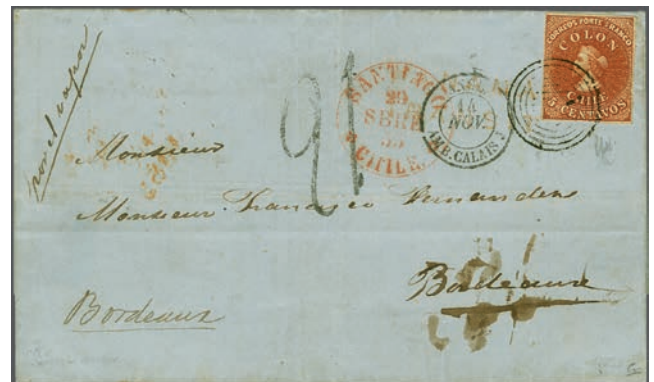 por el vapor
CORREOS PORTE FRANCO
COLON
CHILE
5 CENTAVOS
SANTIAGO
29
SEBE
CHILE
14
NOV.
AMB. CALAIS
21
Monsieur
Monsieur Francisco Fernandez
Bordeaux
Bordeaux